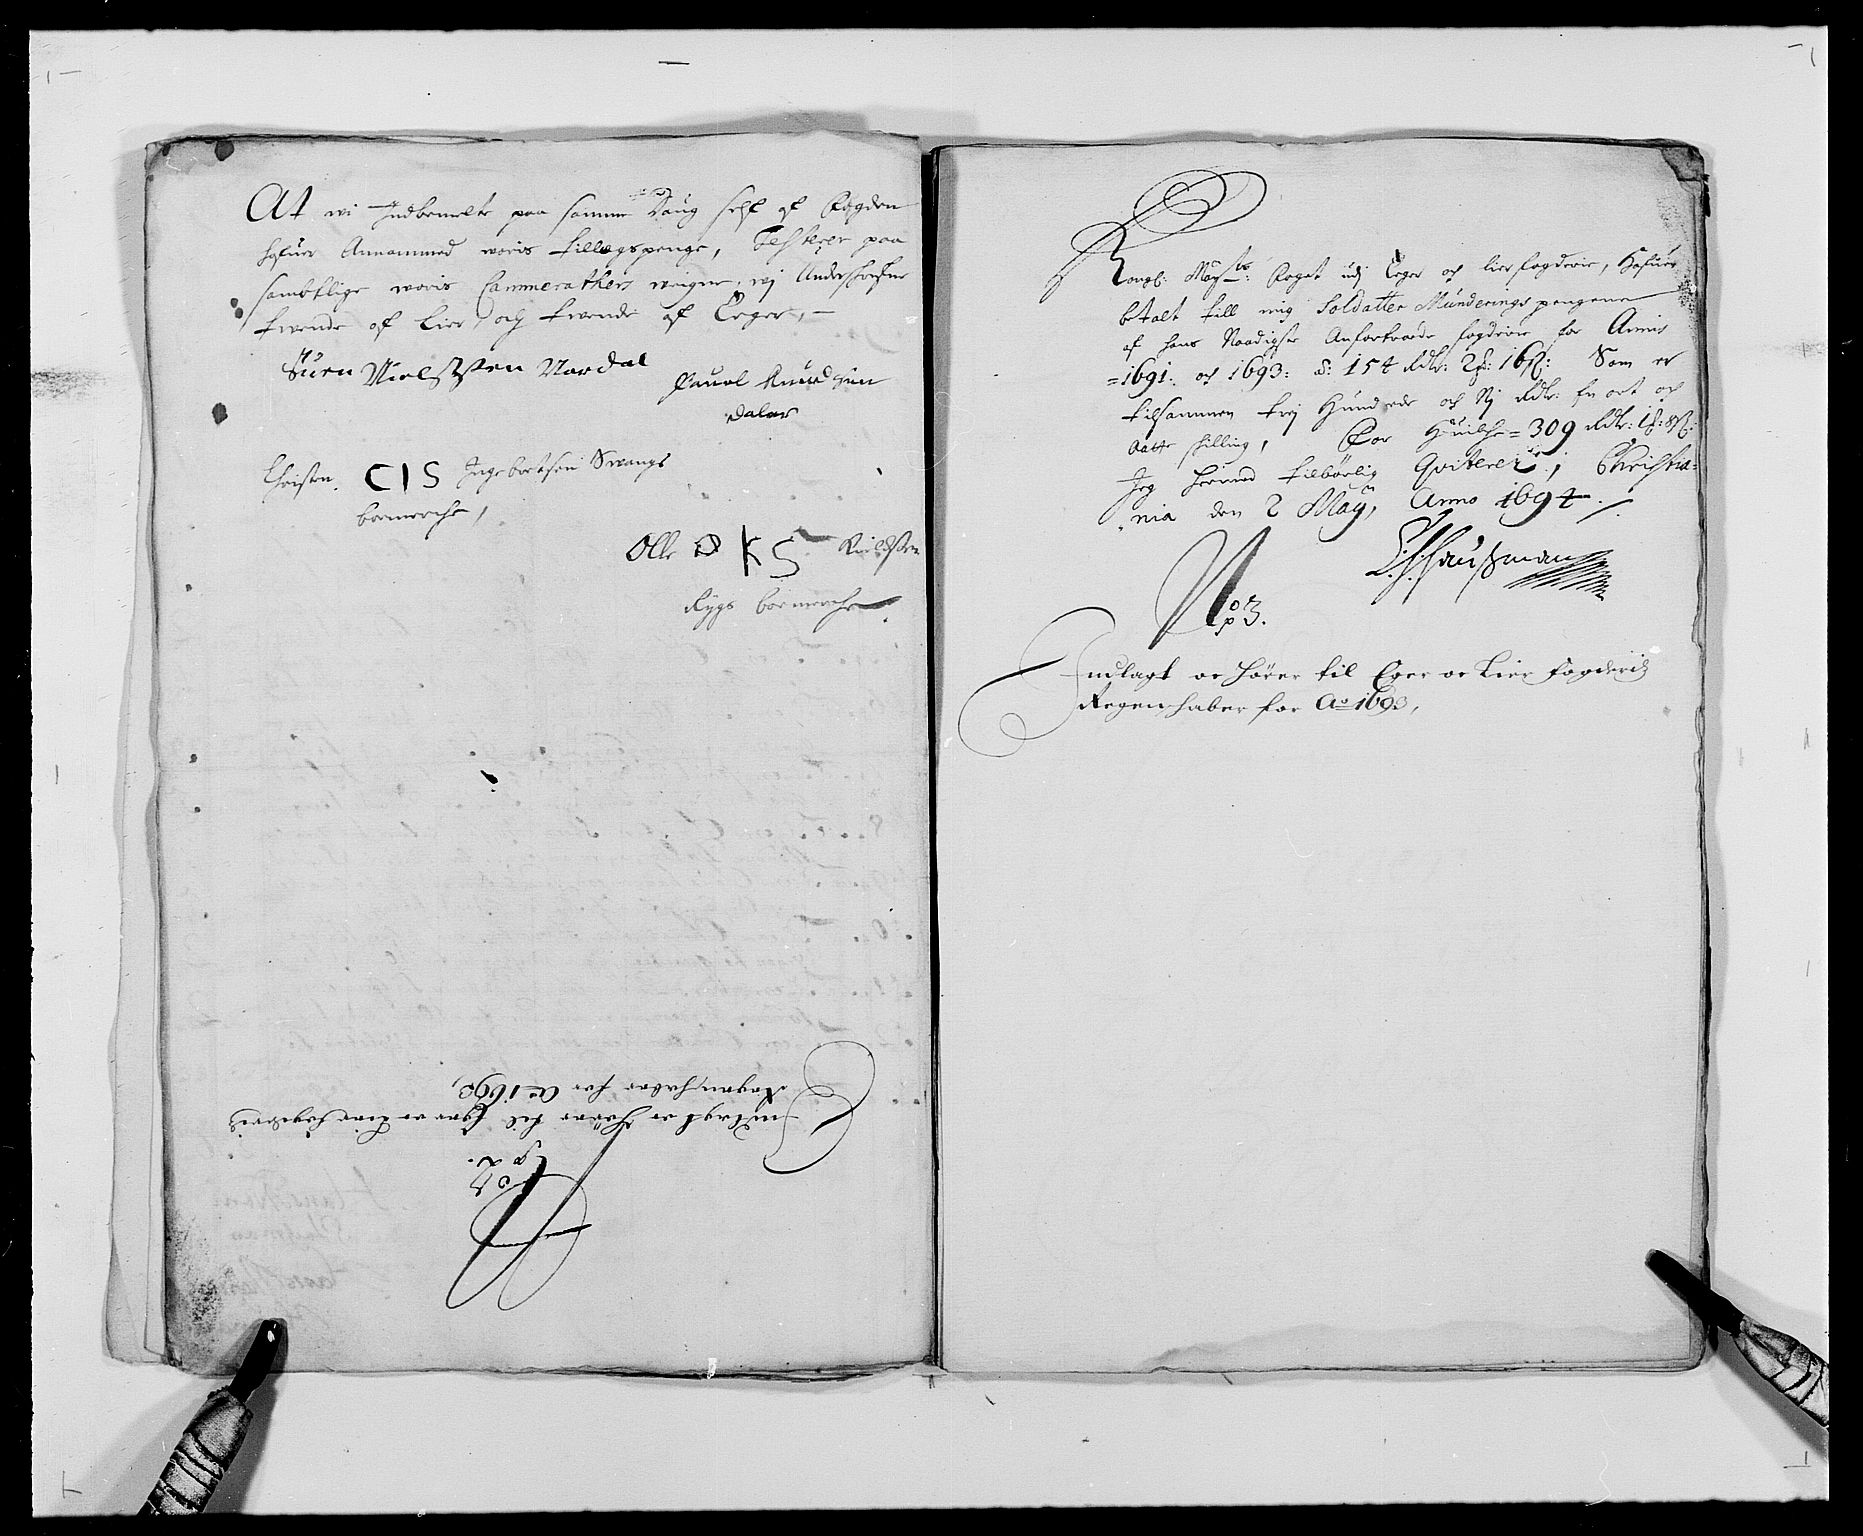 At wi Indbemelte paa samme Daug self af Fogden
hafuer Annammed woris tillegspenge, Testerer paa
sambtlige woris Cammerathers weigne, wj Underschrefne
twende af Lier, och twende af Eeger, —
Suen Nielsszen Nordal
Pauel Knudsen
Daler
Christen C I S Ingebretsen Swangs
boemerche,
Olle O K S Kieldsen
Rygs boemerche
No
p 2.
Indlagt oc hörer til Eger oc Lier fogderis
Regenschaber for Ao 1693,
Kongl: Mayts: Foget udj Eeger och Lier fogderie, Hafuer
betalt till mig Soldatter Munderings pengene
af hans Naadigst Anfortroede fogderie for Annis
1691: och 1693: à: 154 Rdlr: 2 : 16 s: Som er
tilsammen trej Hundrede och Nj Rdlr: En ort och
aatte schilling, For Huilche = 309 Rdlr: 1 : 8 s:
Jeg hermed tilbörlig Qviterer; Christia=
nia den 2 Maij, Anno 1694 ./.
Haussman
No
p 3.
Indlagt oc hörer til Eger oc Lier fogderis
Regenschaber for Ao 1693,